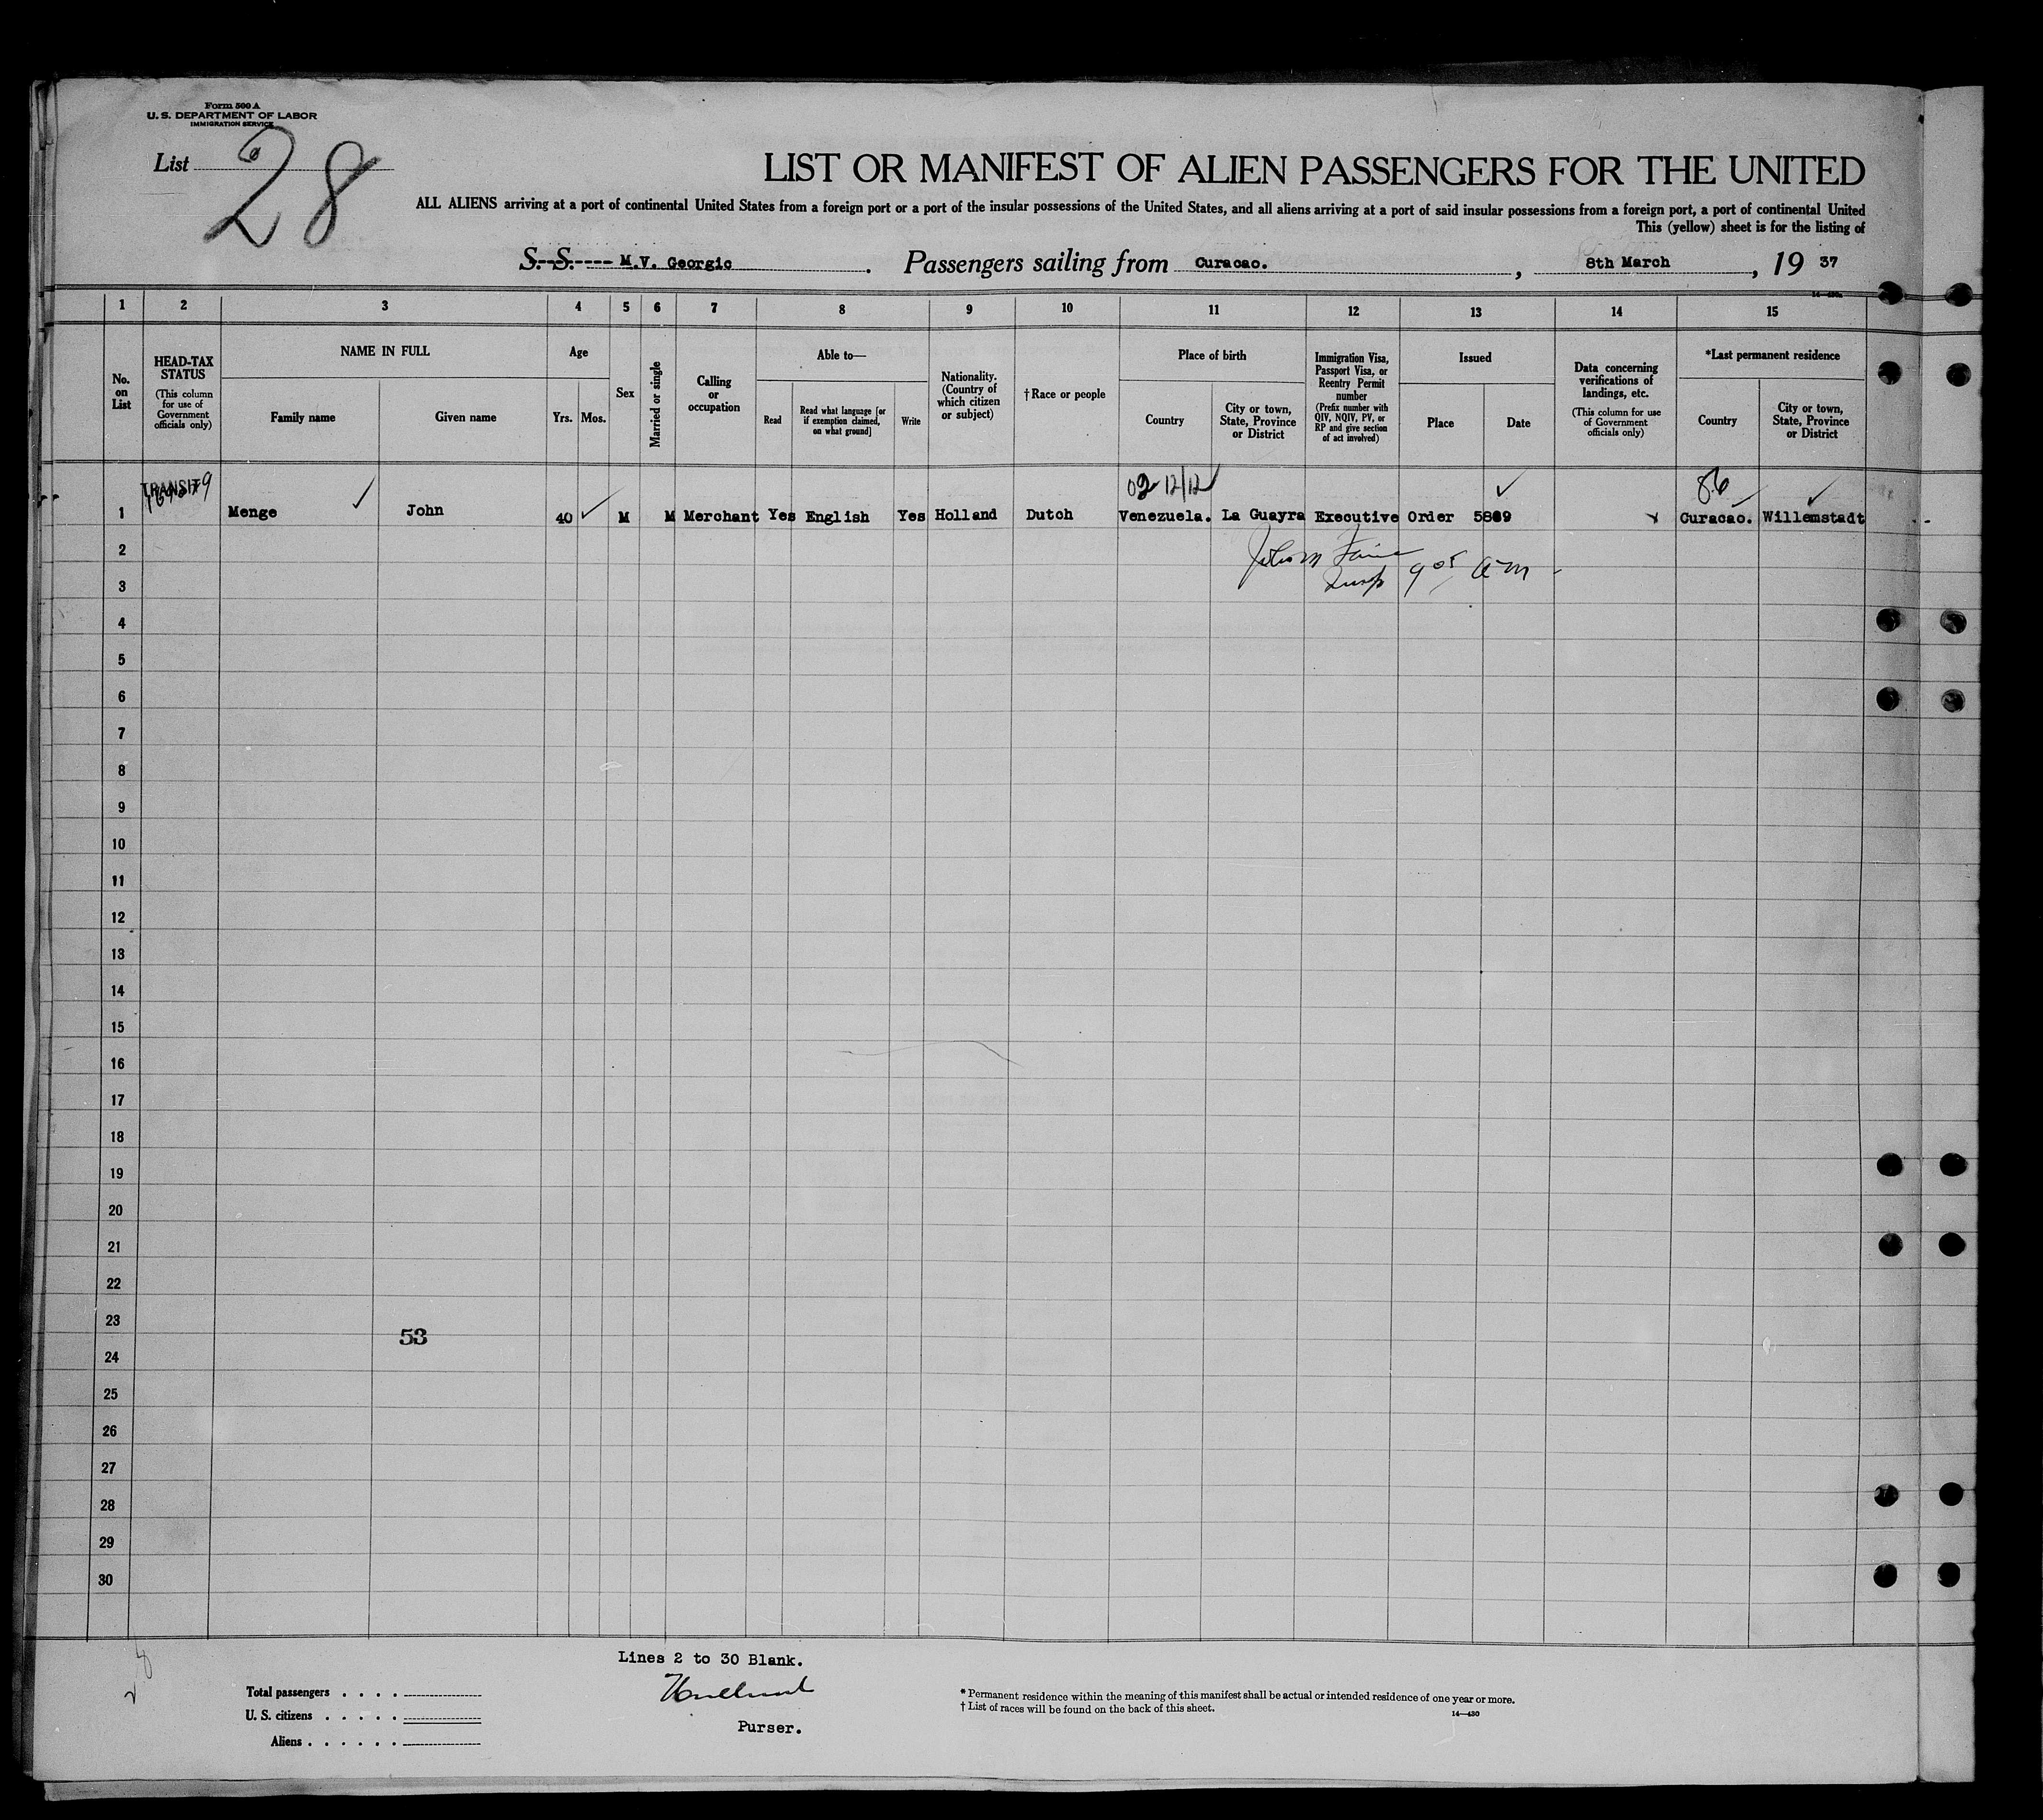 Form 500 A
U. S. DEPARTMENT OF LABOR
IMMIGRATION SERVICE
List
28
LIST OR MANIFEST OF ALIEN PASSENGERS FOR THE UNITED
ALL ALIENS arriving at a port of continental United States from a foreign port or a port of the insular possessions of the United States, and all aliens arriving at a port of said insular possessions from a foreign port, a port of continental United
This (yellow) sheet is for the listing of
S. S. M.V. Georgic. Passengers sailing from Curacao. , 8th March , 19 37
1 2 3 4 5 6 7 8 9 10 11 12 13 14 15
No. on List
HEAD-TAX STATUS (This column for use of Government officials only)
NAME IN FULL
Family name
Given name
Age
Yrs. Mos.
Sex
Married or single
Calling or occupation
Able to—
Read
Read what language [or if exemption claimed, on what ground]
Write
Nationality. (Country of which citizen or subject)
† Race or people
Place of birth
Country
City or town, State, Province or District
Immigration Visa, Passport Visa, or Reentry Permit number (Prefix number with QIV, NQIV, PV, or RP and give section of act involved)
Issued
Place
Date
Data concerning verifications of landings, etc. (This column for use of Government officials only)
*Last permanent residence
Country
City or town, State, Province or District
TRANSIT 12/12 86
1 Menge John 40 M M Merchant Yes English Yes Holland Dutch Venezuela. La Guayra Executive Order 5869 Curacao. Willemstadt
2
3 9 05 am
4
5
6
7
8
9
10
11
12
13
14
15
16
17
18
19
20
21
22
23
53
24
25
26
27
28
29
30
28
Lines 2 to 30 Blank.
Total passengers . . . .
U. S. citizens . . . . .
Aliens . . . . . .
Purser.
* Permanent residence within the meaning of this manifest shall be actual or intended residence of one year or more.
† List of races will be found on the back of this sheet.
14—430